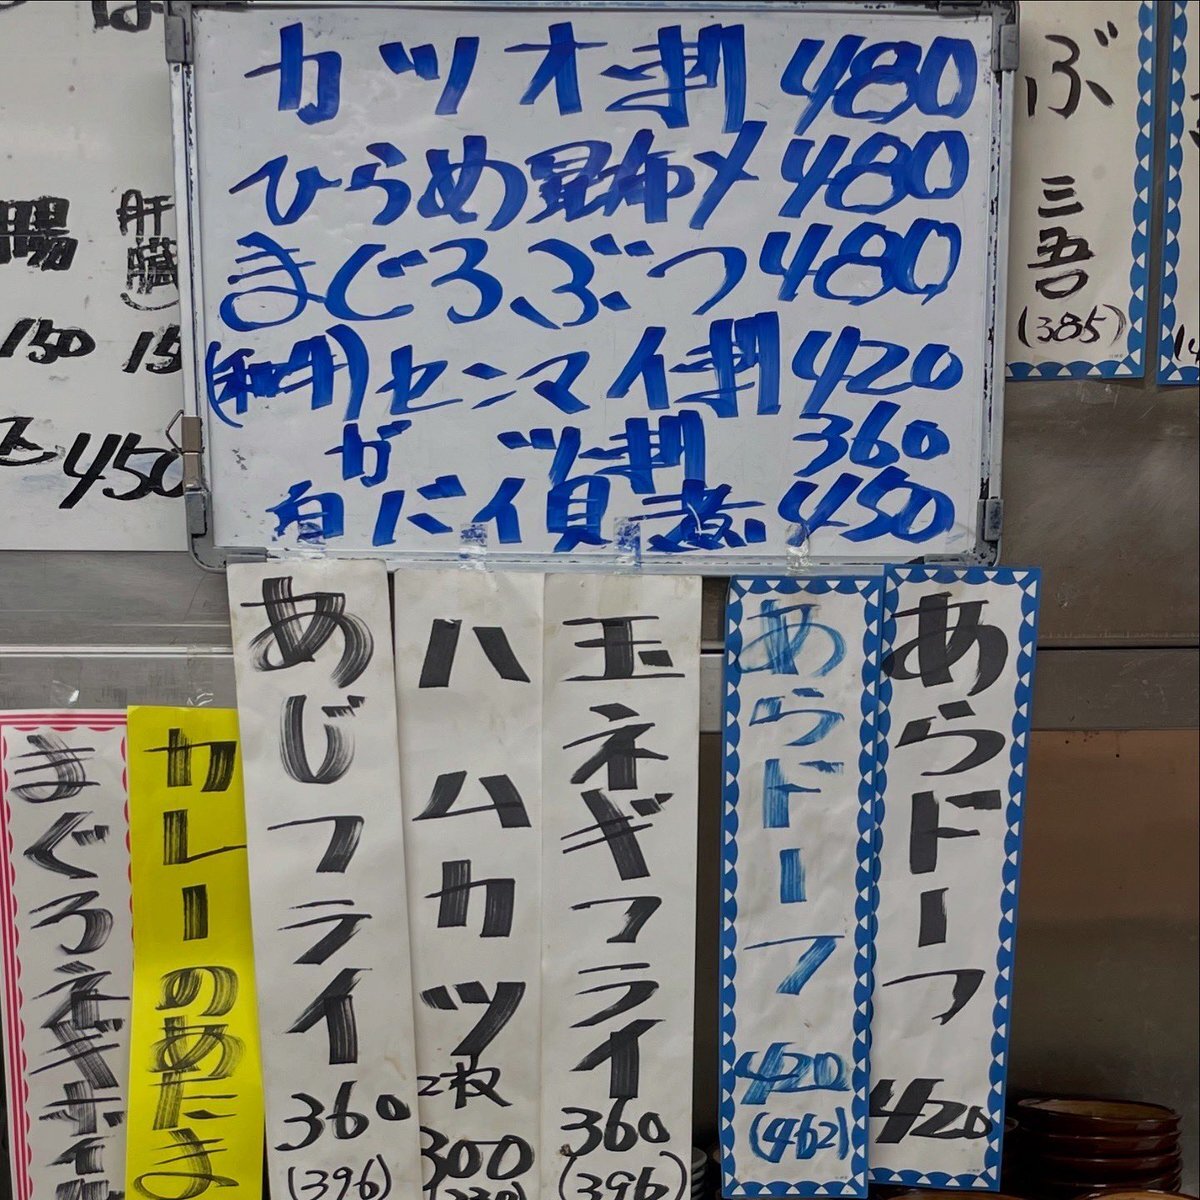 カツオ刺 480
ひらめ昆布〆 480
まぐろぶつ 480
(和牛)センマイ刺 420
ガツ刺 360
白バイ貝煮 450
ぶ
三
吾
(385)
腸
150
肝臓
15
450
まぐろネギ
カレーのあたま
あじフライ
360
(396)
ハムカツ
2枚
300
玉ネギフライ
360
(396)
あらドーフ
420
(462)
あらドーフ
420